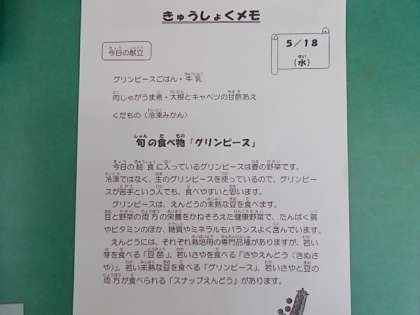 きゅうしょくメモ
今日の献立
5／18
（水）
グリンピースごはん・牛乳
肉じゃがうま煮・大根とキャベツの甘酢あえ
くだもの（冷凍みかん）
旬の食べ物「グリンピース」
今日の給食に入っているグリンピースは春の野菜です。
冷凍ではなく、生のグリンピースを使っているので、グリンピー
スが苦手という人でも、食べやすいと思います。
グリンピースは、えんどうの未熟な豆を食べます。
豆と野菜の両方の栄養をかねそろえた健康野菜で、たんぱく質
やビタミンのほか、糖質やミネラルもバランスよく含んでいます。
えんどうには、それぞれ栽培用の専門品種がありますが、若い
芽を食べる「豆苗」、若いさやを食べる「さやえんどう（きぬさ
や）」、若い未熟な豆を食べる「グリンピース」、若いさやと豆の
両方が食べられる「スナップえんどう」があります。